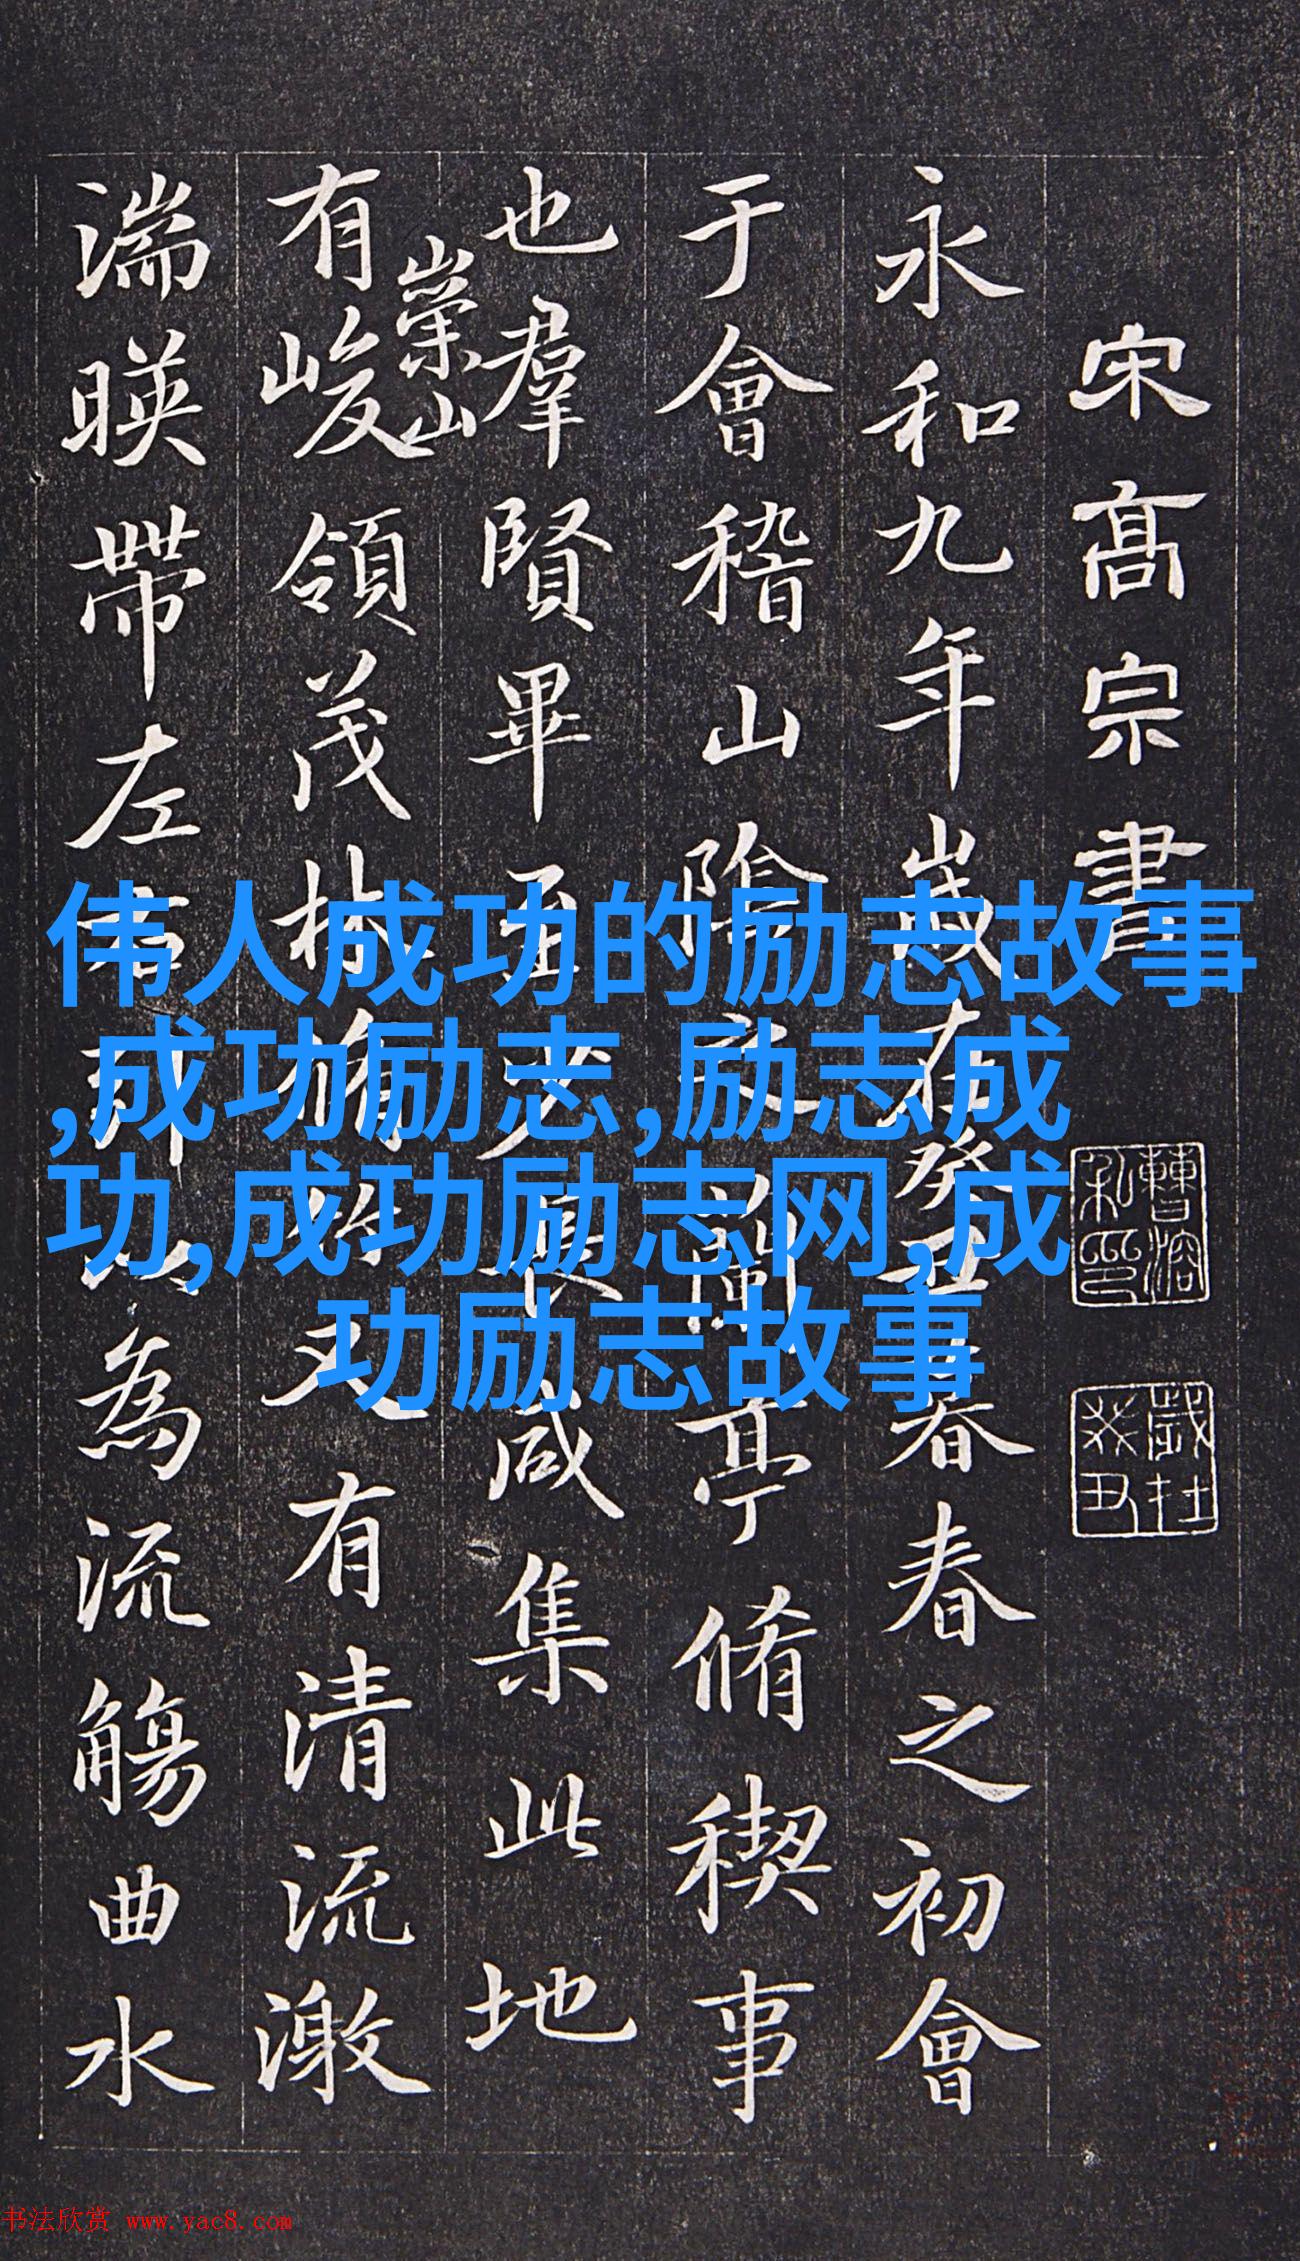 宋高宗書
永和九年歲在癸丑春之初會
于會稽山陰之蘭亭脩稧事
也羣賢畢至少長咸集此地
崇山
有峻領茂林脩竹又有清流激
湍暎帶左右引以為流觴曲水
曹溶私印
歲在癸丑
伟人成功的励志故事
,成功励志,励志成
功,成功励志网,成
功励志故事
书法欣赏 www.yac8.com